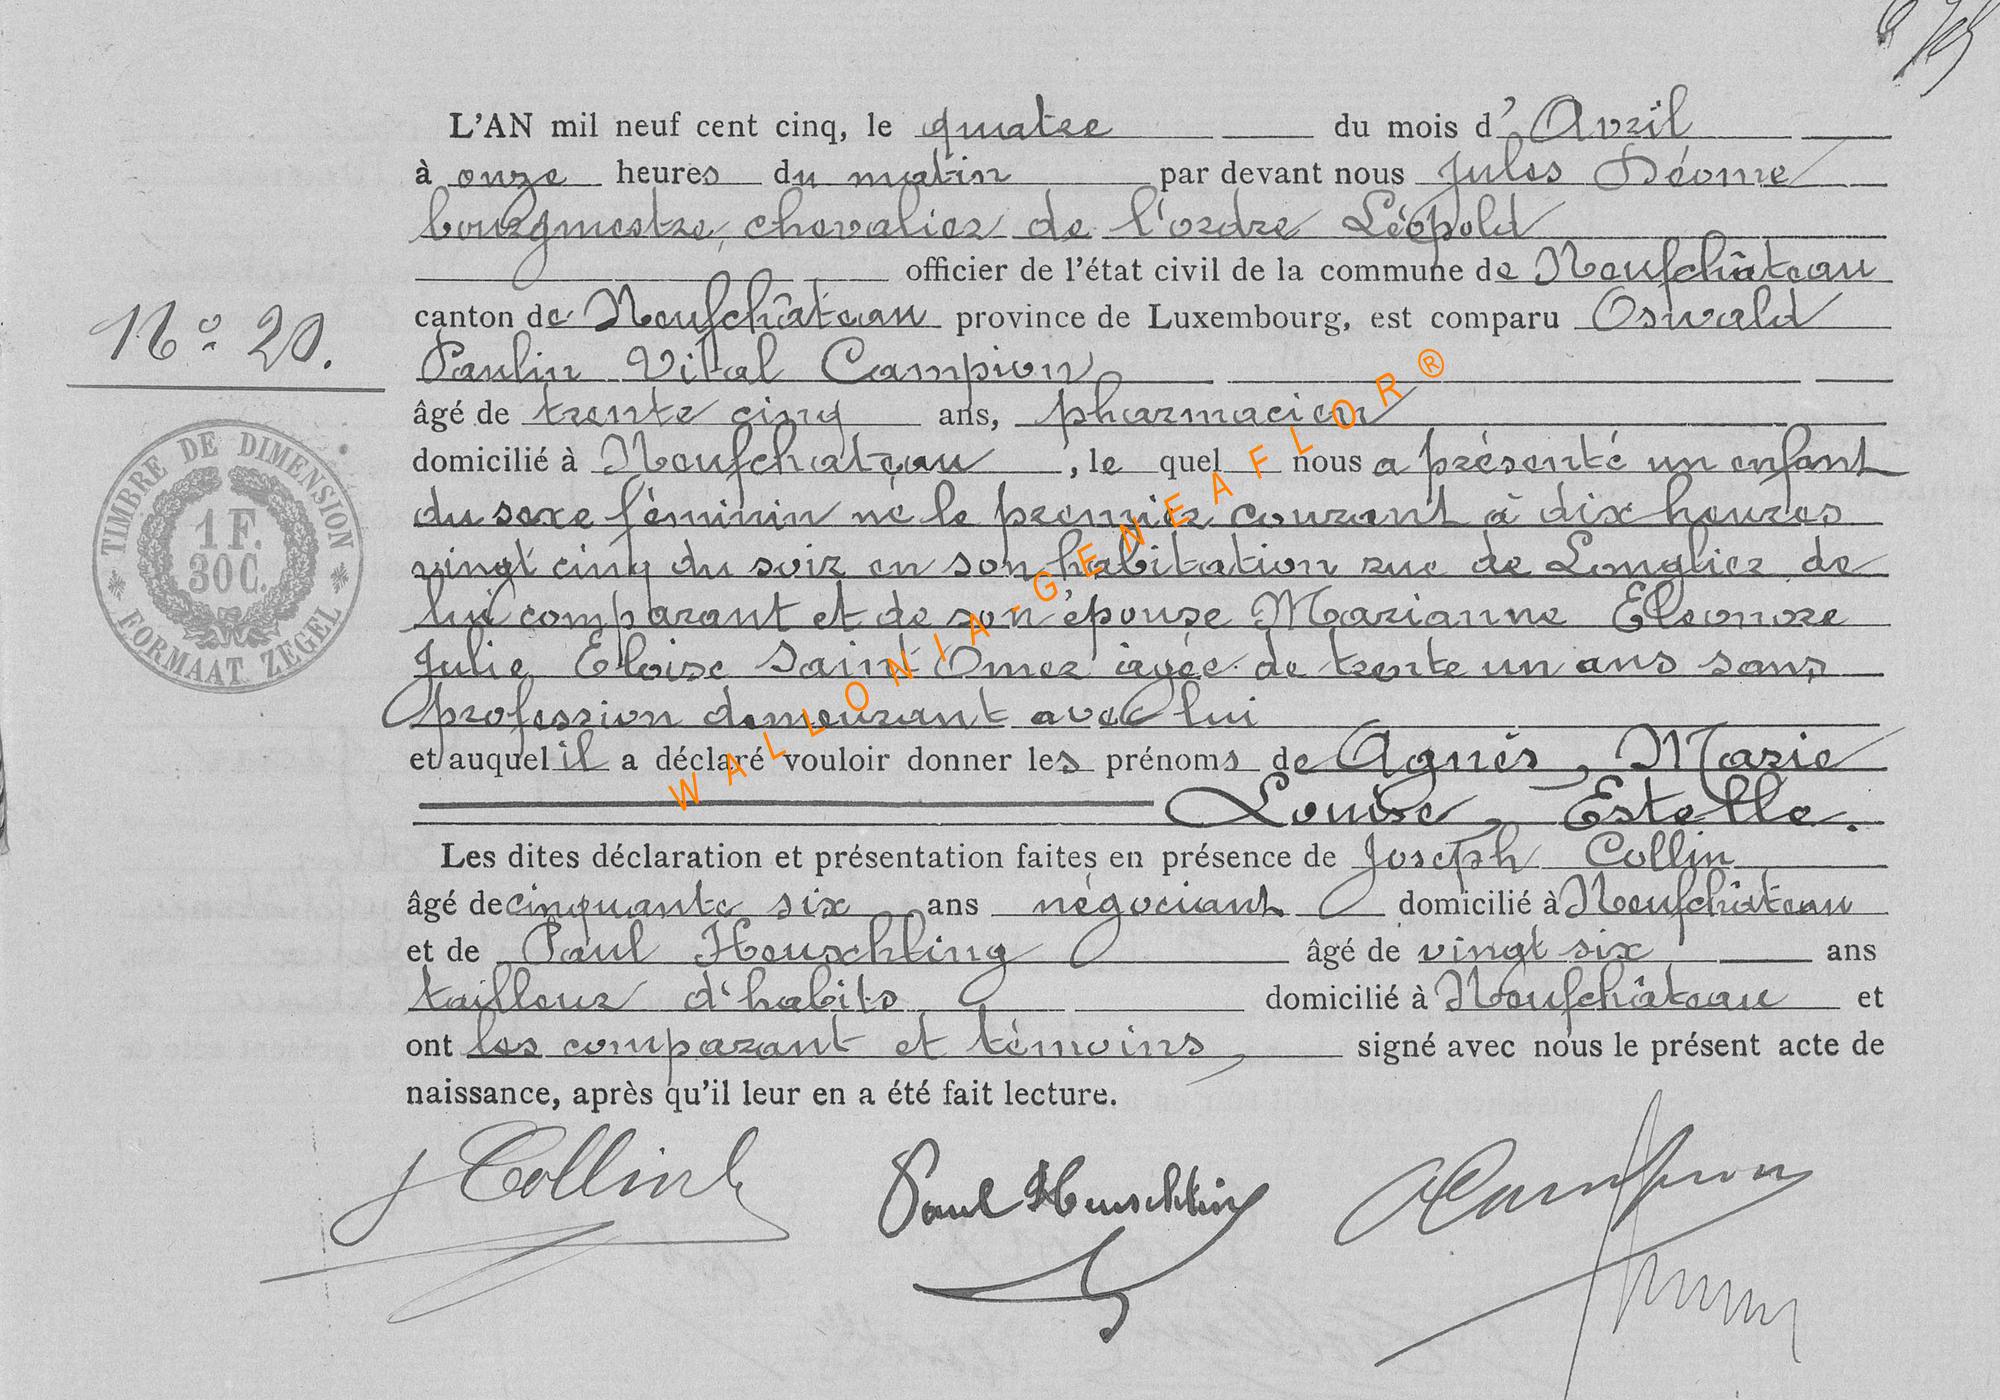 L'AN mil neuf cent cinq, le quatre du mois d'Avril
à onze heures du matin par devant nous Jules Déome
bourgmestre, chevalier de l'ordre Léopold
officier de l'état civil de la commune de Neufchâteau
N° 20.
canton de Neufchâteau province de Luxembourg, est comparu Oswald
Paulin Vital Campion
âgé de trente cinq ans, pharmacien
domicilié à Neufchateau, le quel nous a présenté un enfant
du sexe féminin né le premier courant à dix heures
vingt cinq du soir en son habitation rue de Longlier de
lui comparant et de son épouse Marianne Eléonore
Julie Eloïse Saint Omer âgée de trente un ans sans
profession demeurant avec lui
et auquel il a déclaré vouloir donner les prénoms de Agnès, Marie
Louise, Estelle.
Les dites déclaration et présentation faites en présence de Joseph Collin
âgé de cinquante six ans négociant domicilié à Neufchâteau
et de Paul Heuschling âgé de vingt six ans
tailleur d'habits domicilié à Neufchâteau et
ont les comparant et témoins, signé avec nous le présent acte de
naissance, après qu'il leur en a été fait lecture.
J Collin
Paul Heuschling
O Campion
TIMBRE DE DIMENSION
1 F.
30 C.
FORMAAT ZEGEL
WALLONIA-GENEAFLOR®